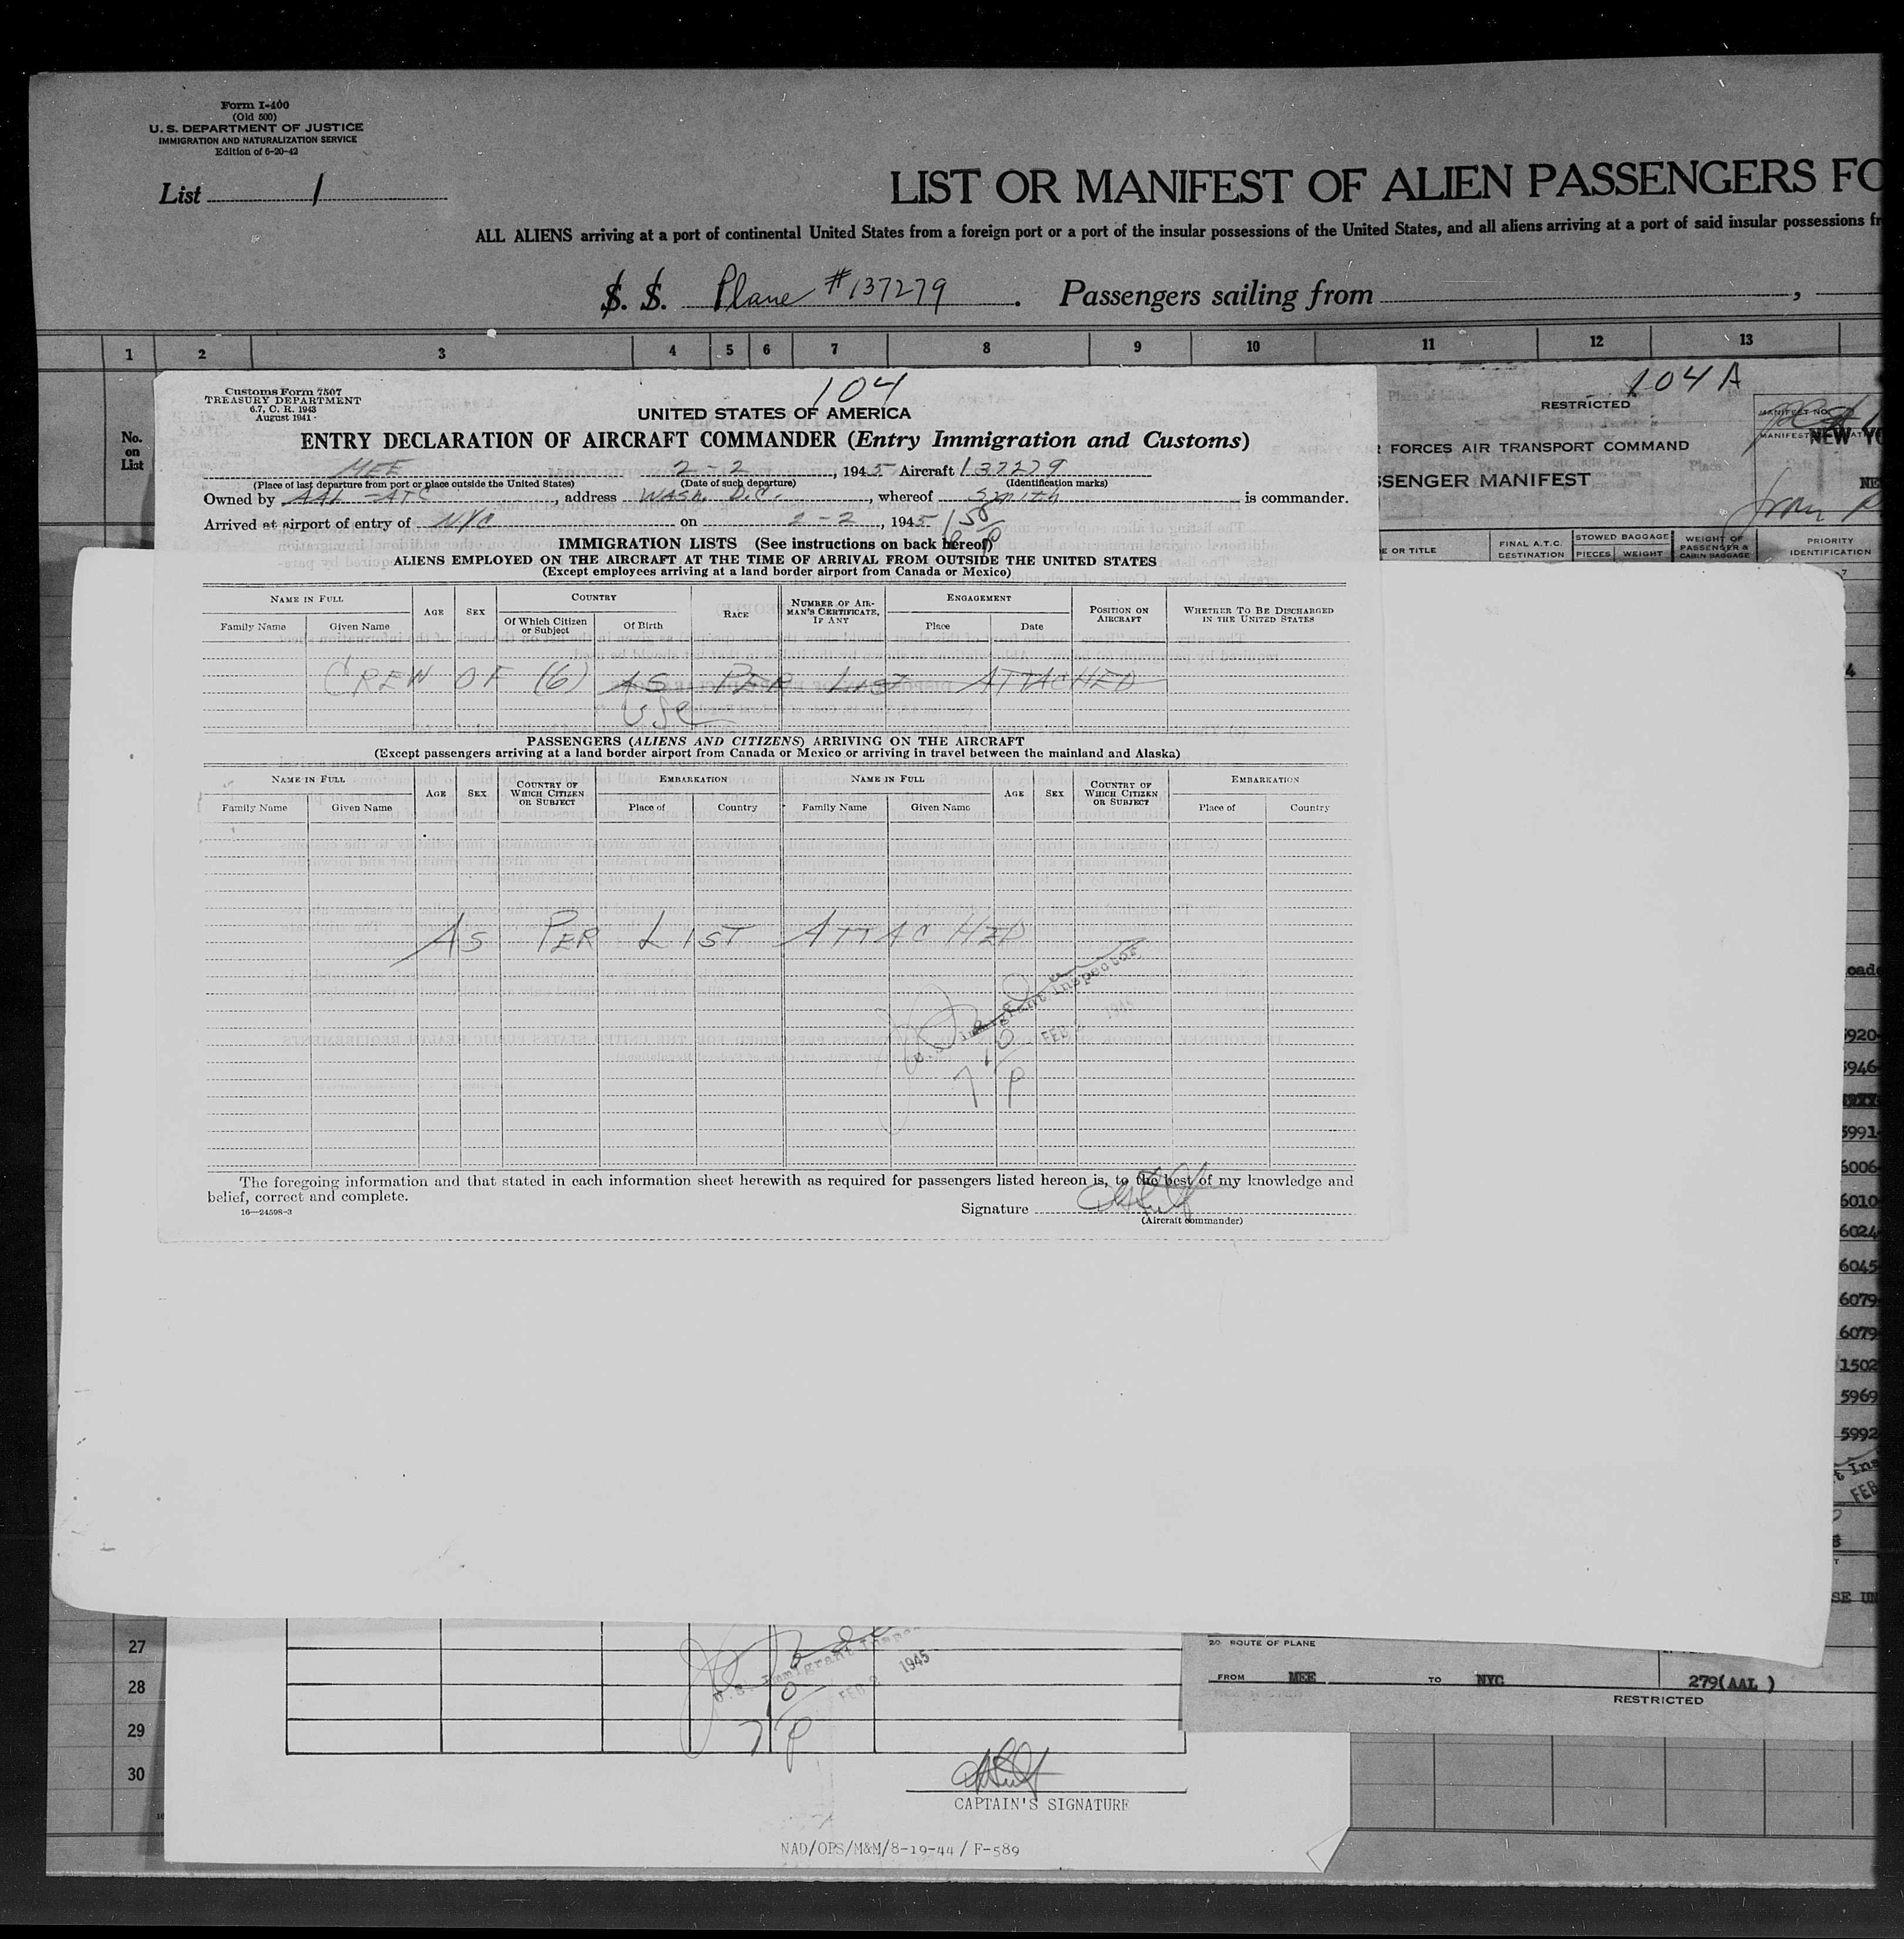 Form I-400
(Old 500)
U. S. DEPARTMENT OF JUSTICE
IMMIGRATION AND NATURALIZATION SERVICE
Edition of 6-20-42
List 1
LIST OR MANIFEST OF ALIEN PASSENGERS FO
ALL ALIENS arriving at a port of continental United States from a foreign port or a port of the insular possessions of the United States, and all aliens arriving at a port of said insular possessions fr
S. S. Plane #137279 . Passengers sailing from ,
1 2 3 4 5 6 7 8 9 10 11 12 13
No.
on
List
104 A
RESTRICTED
MANIFEST NO.
NEW YO
FORCES AIR TRANSPORT COMMAND
SSENGER MANIFEST
NE
from
E OR TITLE
FINAL A.T.C.
DESTINATION
STOWED BAGGAGE
PIECES WEIGHT
WEIGHT OF
PASSENGER &
CABIN BAGGAGE
PRIORITY
IDENTIFICATION
Customs Form 7507
TREASURY DEPARTMENT
6.7, C. R. 1943
August 1941
104
UNITED STATES OF AMERICA
ENTRY DECLARATION OF AIRCRAFT COMMANDER (Entry Immigration and Customs)
MEE 2-2, 1945 Aircraft 137279
(Place of last departure from port or place outside the United States) (Date of such departure) (Identification marks)
Owned by AAL-ATC, address Wash. D.C., whereof Smith is commander.
Arrived at airport of entry of NYC on 2-2, 1945
IMMIGRATION LISTS (See instructions on back hereof)
ALIENS EMPLOYED ON THE AIRCRAFT AT THE TIME OF ARRIVAL FROM OUTSIDE THE UNITED STATES
(Except employees arriving at a land border airport from Canada or Mexico)
NAME IN FULL
Family Name Given Name
AGE
SEX
COUNTRY
Of Which Citizen or Subject
Of Birth
RACE
NUMBER OF AIRMAN'S CERTIFICATE, IF ANY
ENGAGEMENT
Place Date
POSITION ON AIRCRAFT
WHETHER TO BE DISCHARGED IN THE UNITED STATES
CREW OF (6) AS PER LIST ATTACHED
PASSENGERS (ALIENS AND CITIZENS) ARRIVING ON THE AIRCRAFT
(Except passengers arriving at a land border airport from Canada or Mexico or arriving in travel between the mainland and Alaska)
NAME IN FULL AGE SEX COUNTRY OF WHICH CITIZEN OR SUBJECT EMBARKATION NAME IN FULL AGE SEX COUNTRY OF WHICH CITIZEN OR SUBJECT EMBARKATION
Family Name Given Name Place of Country Family Name Given Name Place of Country
AS PER LIST ATTACHED
U.S. Immigrant Inspector
FEB 2 1945
7 P
The foregoing information and that stated in each information sheet herewith as required for passengers listed hereon is, to the best of my knowledge and
belief, correct and complete.
16—24598-3
Signature
(Aircraft commander)
5920
5946
5991
6006
6010
6024
6045
6079
6079
1502
5969
5992
FEB
27
28
29
30
U.S. Immigrant Inspe
FEB 2 1945
7 P
CAPTAIN'S SIGNATURE
NAD/OPS/M&M/8-19-44/ F-589
20 ROUTE OF PLANE
FROM MEE TO NYC 279(AAL )
RESTRICTED